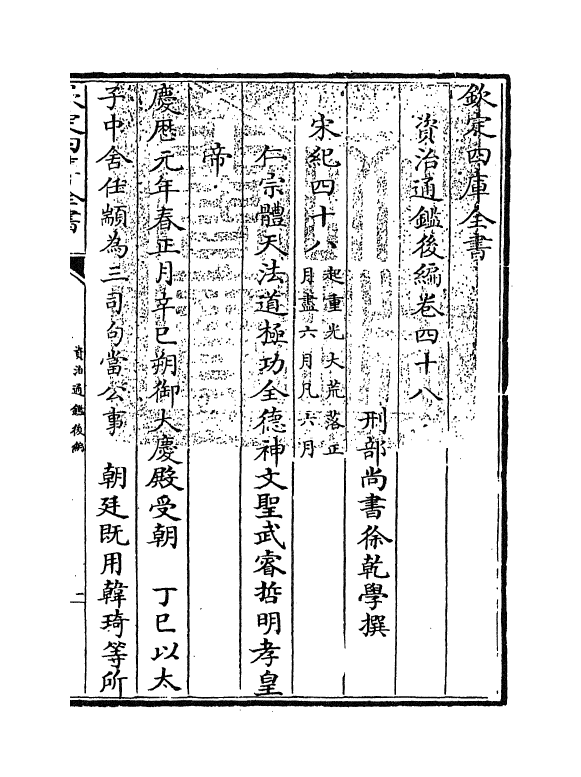 欽定四庫全書
資治通鑑後編卷四十八
刑部尚書徐乾學撰
宋紀四十八
起重光大荒落正
月盡六月凡六月
仁宗體天法道極功全德神文聖武睿哲明孝皇
帝
慶歷元年春正月辛巳朔御大慶殿受朝　丁巳以太
子中舍任顓為三司句當公事　朝廷既用韓琦等所
資治通鑑後編